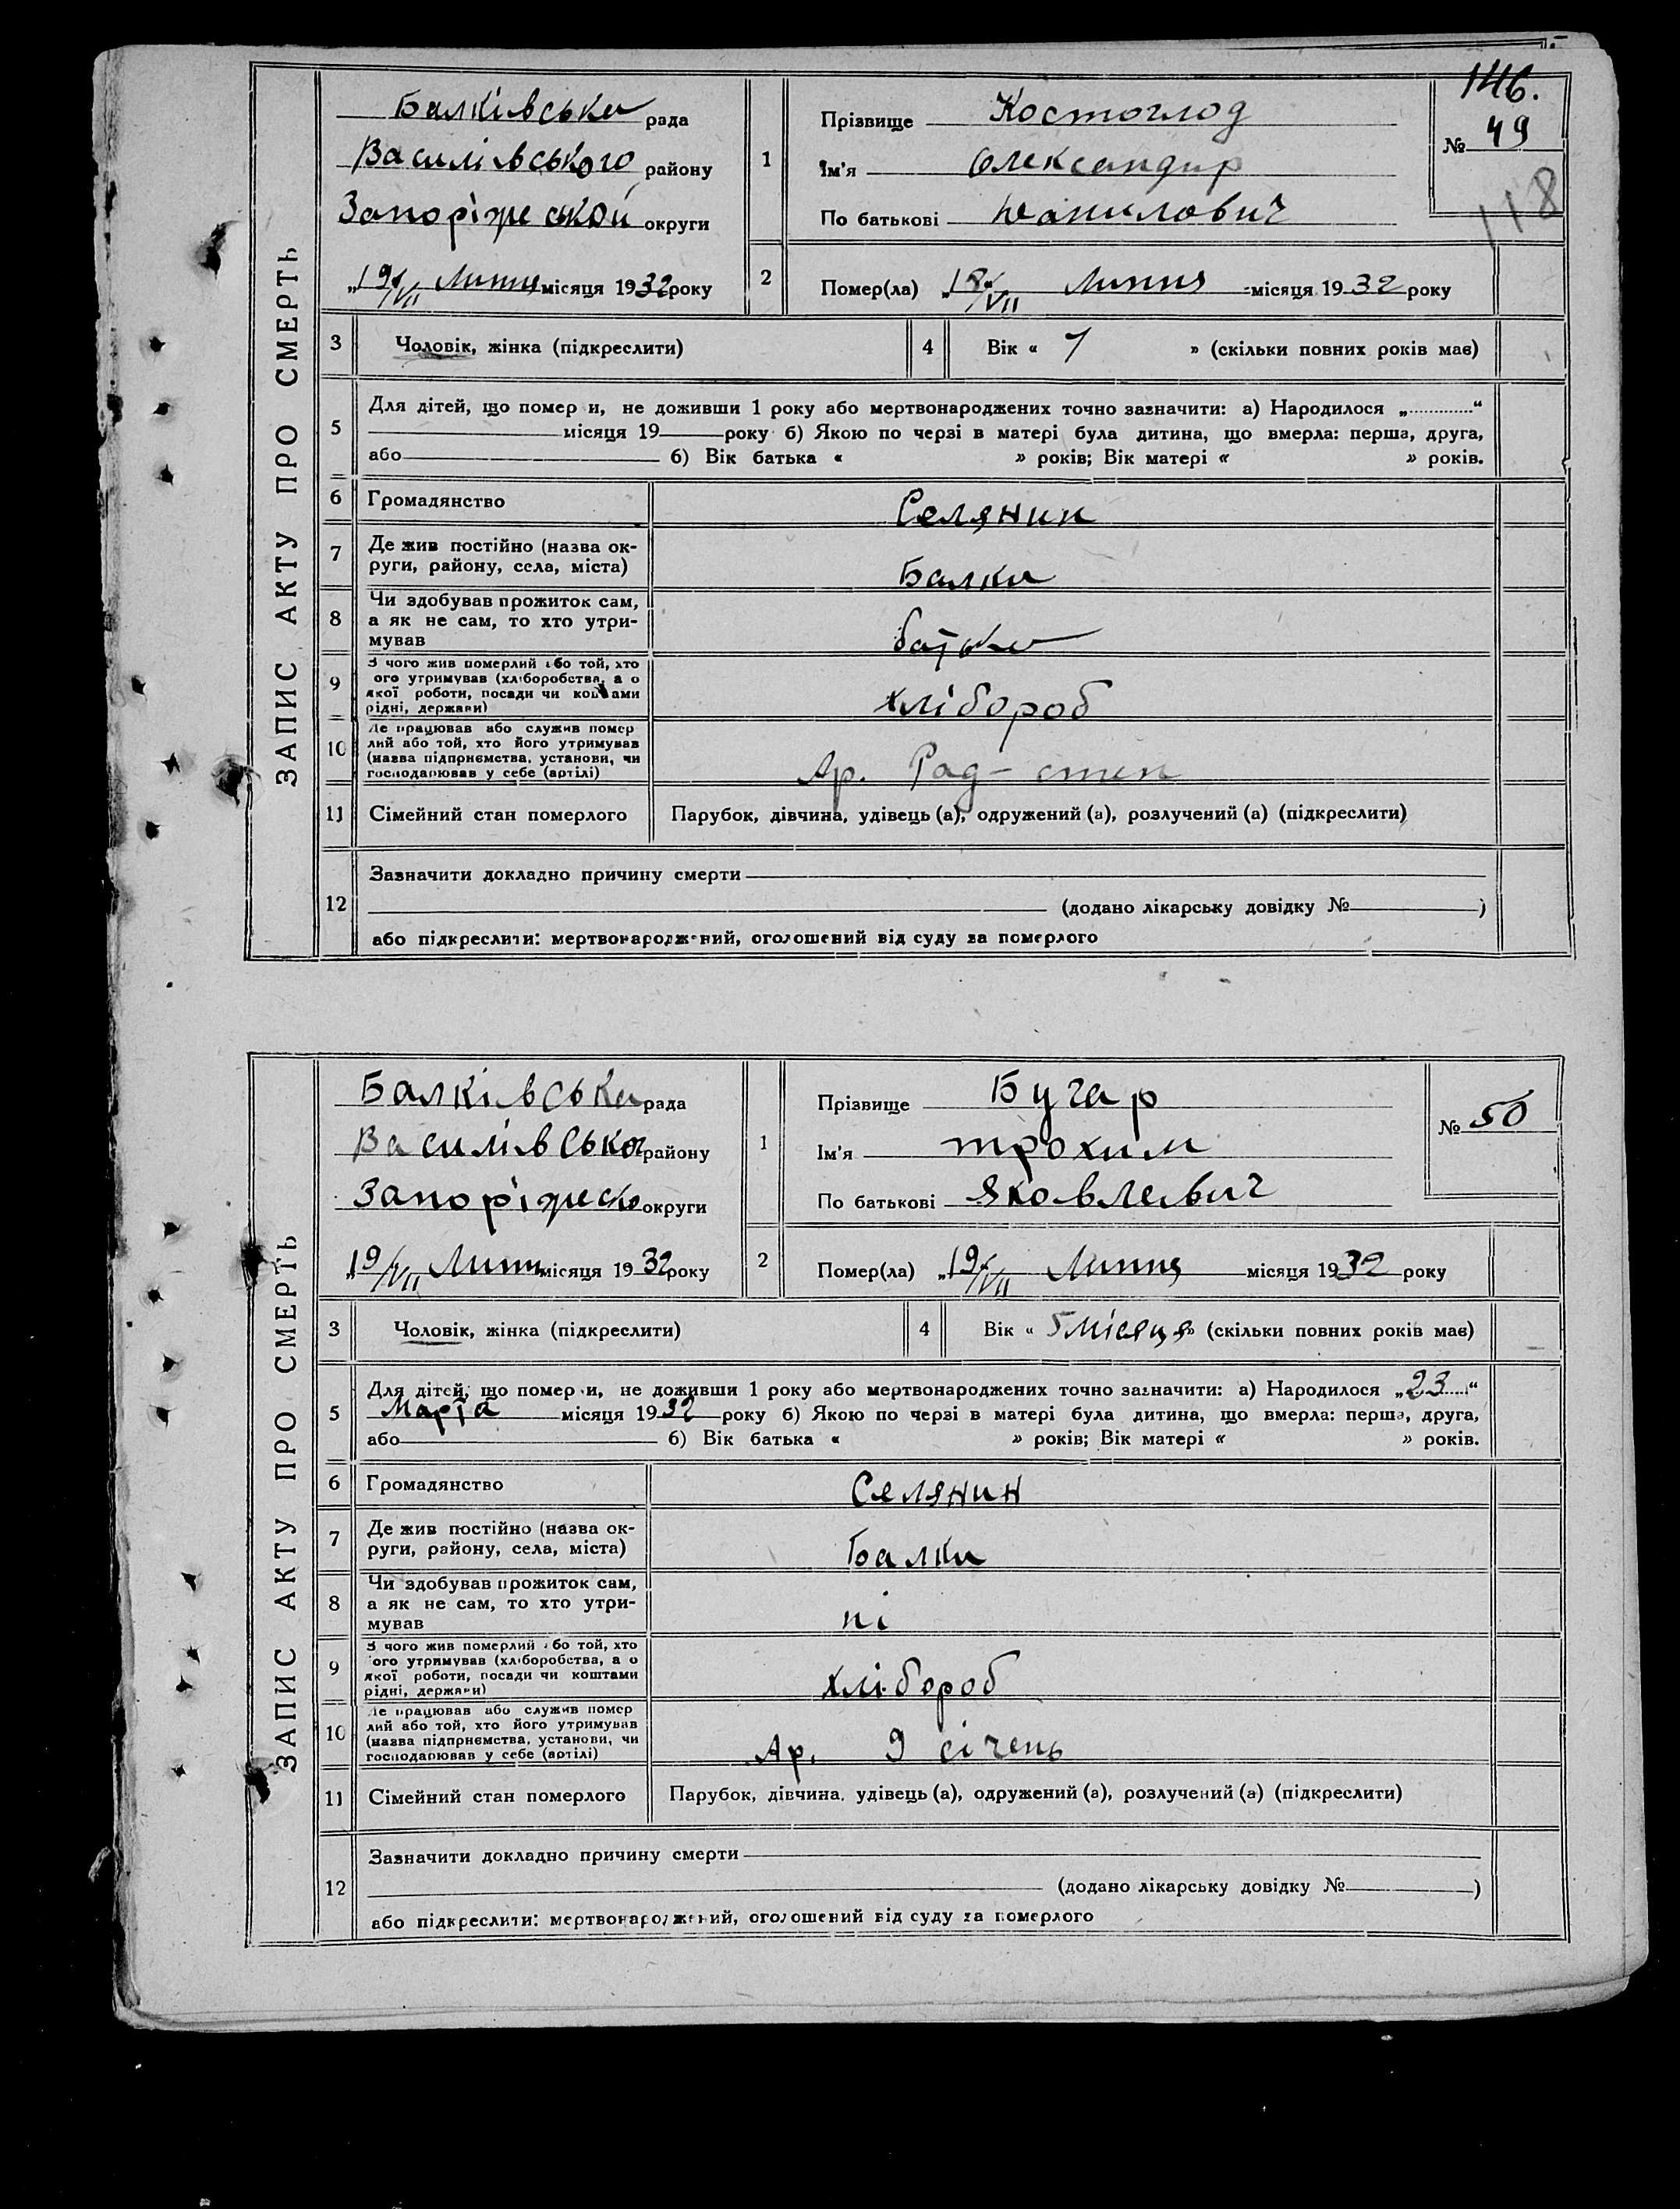 146.
ЗАПИС АКТУ ПРО СМЕРТЬ
Балківська рада
Василівського району
Запоріжській округи
„19/VII Липня місяця 1932 року
1
Прізвище Костоглод
Ім'я Олександир
По батькові Данилович
№ 49
118
2
Помер(ла) „18/VII Липня місяця 1932 року
3 Чоловік, жінка (підкреслити)
4 Вік « 7 » (скільки повних років має)
5 Для дітей, що помер и, не доживши 1 року або мертвонароджених точно зазначити: а) Народилося „ “
місяця 19 року б) Якою по черзі в матері була дитина, що вмерла: перша, друга,
або б) Вік батька « » років; Вік матері « » років.
6 Громадянство Селянин
7 Де жив постійно (назва ок-
руги, району, села, міста) Балки
8 Чи здобував прожиток сам,
а як не сам, то хто утри-
мував батько
9 З чого жив померлий або той, хто
ого утримував (хліборобства, а о
якої роботи, посади чи коштами
рідні, держави) хлібороб
10 Де працював або служив помер
лий або той, хто його утримував
(назва підприємства, установи, чи
господарював у себе (артілі) Ар. Рад-степ
11 Сімейний стан померлого Парубок, дівчина, удівець (а), одружений (а), розлучений (а) (підкреслити)
12 Зазначити докладно причину смерти
(додано лікарську довідку № )
або підкреслити: мертвонароджений, оголошений від суду за померлого
ЗАПИС АКТУ ПРО СМЕРТЬ
Балківська рада
Василівськог району
Запоріжсько округи
„19/VII Липн місяця 1932 року
1
Прізвище Бугар
Ім'я Трохим
По батькові Яковлевич
№ 50
2
Помер(ла) „19/VII Липня місяця 1932 року
3 Чоловік, жінка (підкреслити)
4 Вік « 5 місяця » (скільки повних років має)
5 Для дітей, що помер и, не доживши 1 року або мертвонароджених точно зазначити: а) Народилося „23“
Марта місяця 1932 року б) Якою по черзі в матері була дитина, що вмерла: перша, друга,
або б) Вік батька « » років; Вік матері « » років.
6 Громадянство Селянин
7 Де жив постійно (назва ок-
руги, району, села, міста) Балки
8 Чи здобував прожиток сам,
а як не сам, то хто утри-
мував ні
9 З чого жив померлий або той, хто
ого утримував (хліборобства, а о
якої роботи, посади чи коштами
рідні, держави) хлібороб
10 Де працював або служив помер
лий або той, хто його утримував
(назва підприємства, установи, чи
господарював у себе (артілі) Ар. 9 січень
11 Сімейний стан померлого Парубок, дівчина, удівець (а), одружений (а), розлучений (а) (підкреслити)
12 Зазначити докладно причину смерти
(додано лікарську довідку № )
або підкреслити: мертвонароджений, оголошений від суду за померлого